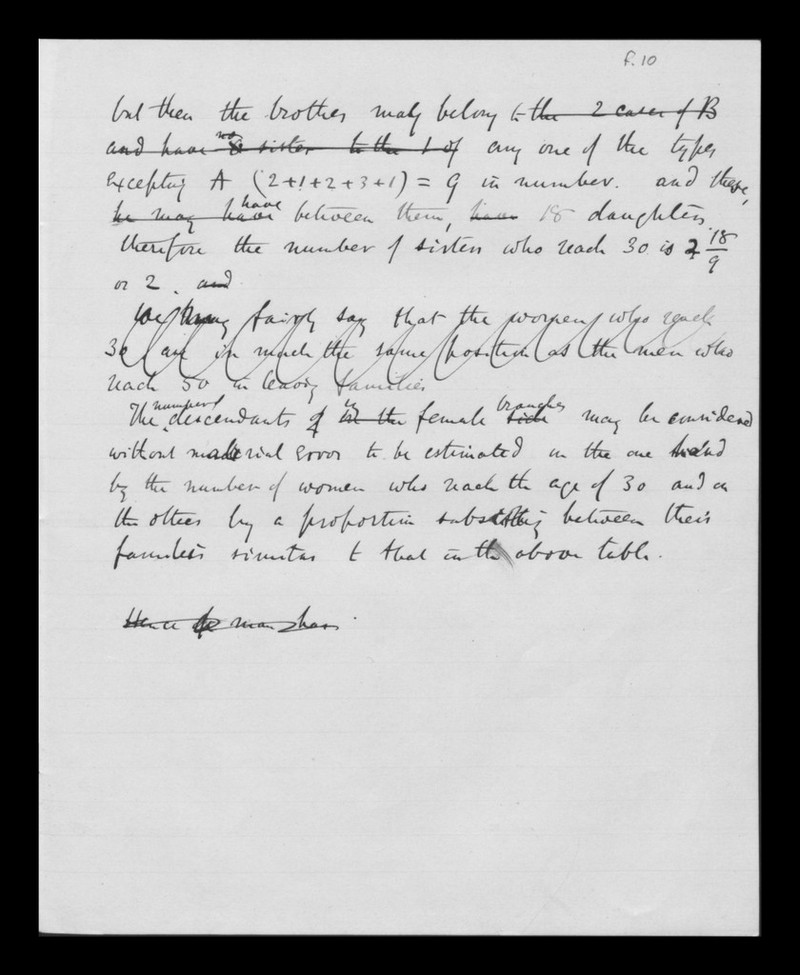 f.10
but then the brothers may belong to the 2 cases of B
and have no sister to the 1 of any one of the types
excepting A (2+1+2+3+1) = 9 in number. and these,
he may have have between them, have 18 daughters.
therefore the number of sisters who reach 30 is 2 18/9
or 2. and
We may fairly say that the women who reach
30 are in much the same position as the men who
reach 50 in leaving families
The number of descendants of in the in female side branches may be considered
without material error to be estimated on the one hand
by the number of women who reach the age of 30 and on
the other by a proportion subsisting between their
families similar to that in the above table.
Hence